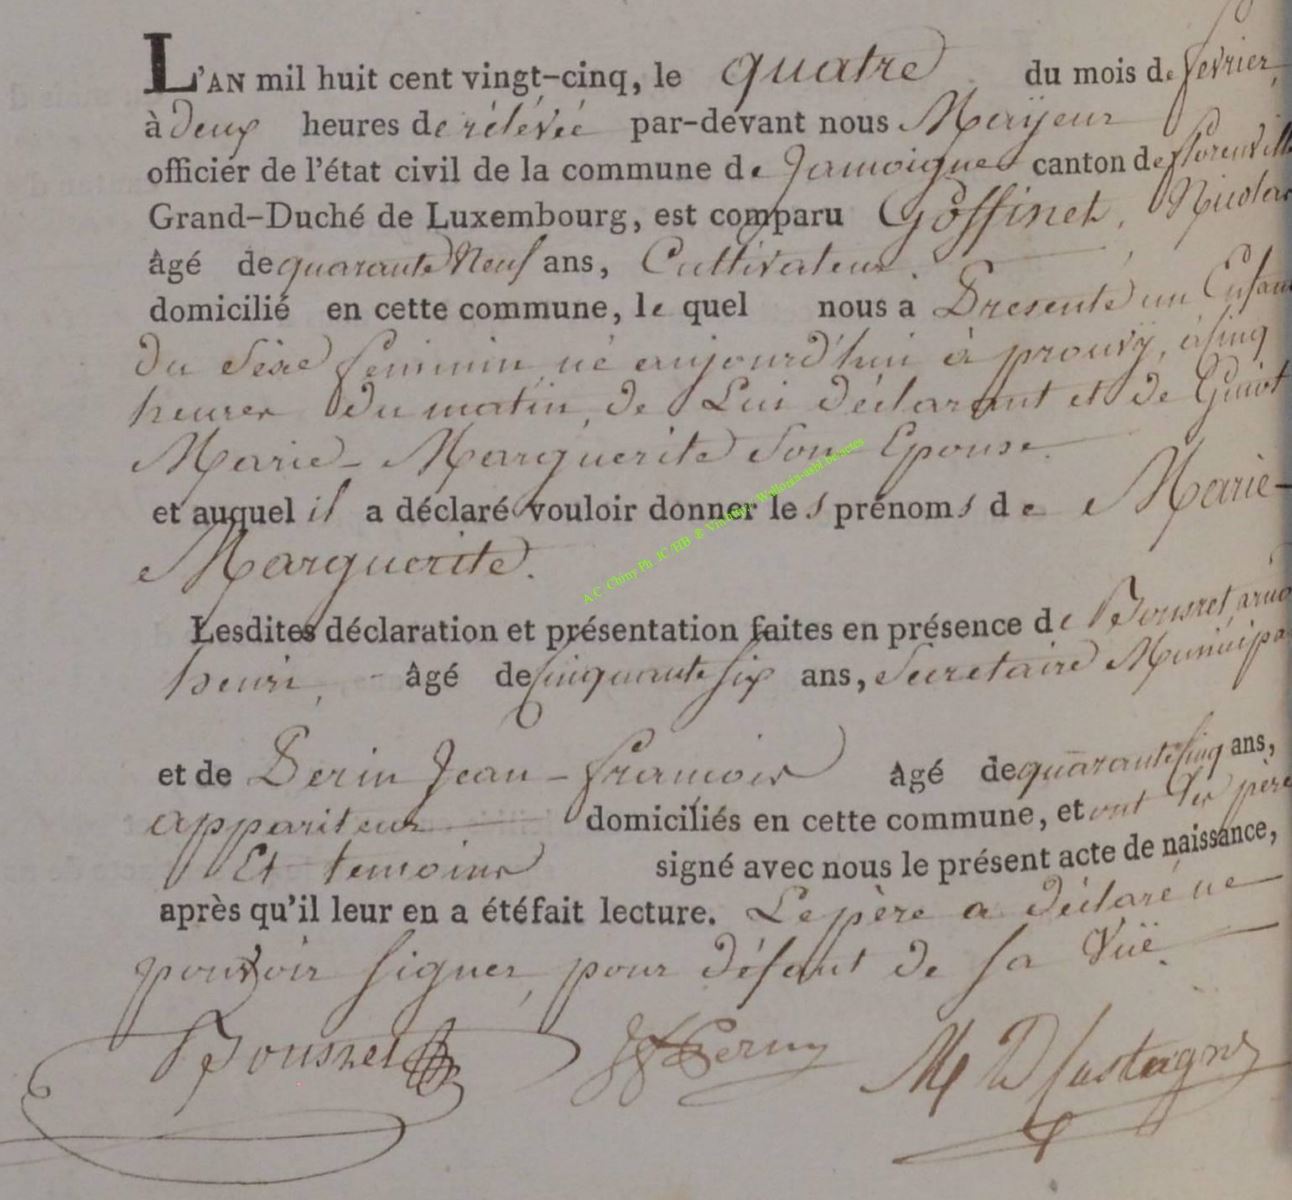 L'AN mil huit cent vingt-cinq, le quatre du mois de fevrier,
à deux heures de rélévée par-devant nous Mayeur
officier de l'état civil de la commune de Jamoigne canton de florenville
Grand-Duché de Luxembourg, est comparu Goffinet, Nicolas
âgé de quarante Neuf ans, Cultivateur.
domicilié en cette commune, le quel nous a Presenté un Enfant
du Sexe feminin, né aujourd'hui à prouvÿ, à cinq
heures du matin, de Lui déclarant et de Guiot
Marie-Marguerite Son Epouse.
et auquel il a déclaré vouloir donner les prénoms de Marie-
Marguerite.
Lesdites déclaration et présentation faites en présence de
henri, âgé de cinquante six ans, Secretaire Municipa
et de Jean-francois âgé de quarante cinq ans,
appariteur domiciliés en cette commune, et ont les père
Et temoins signé avec nous le présent acte de naissance,
après qu'il leur en a étéfait lecture. Le père a déclaré ne
pouvoir signer, pour défaut de sa Vüe.
A.C. Chiny Ph. JC/HB ©